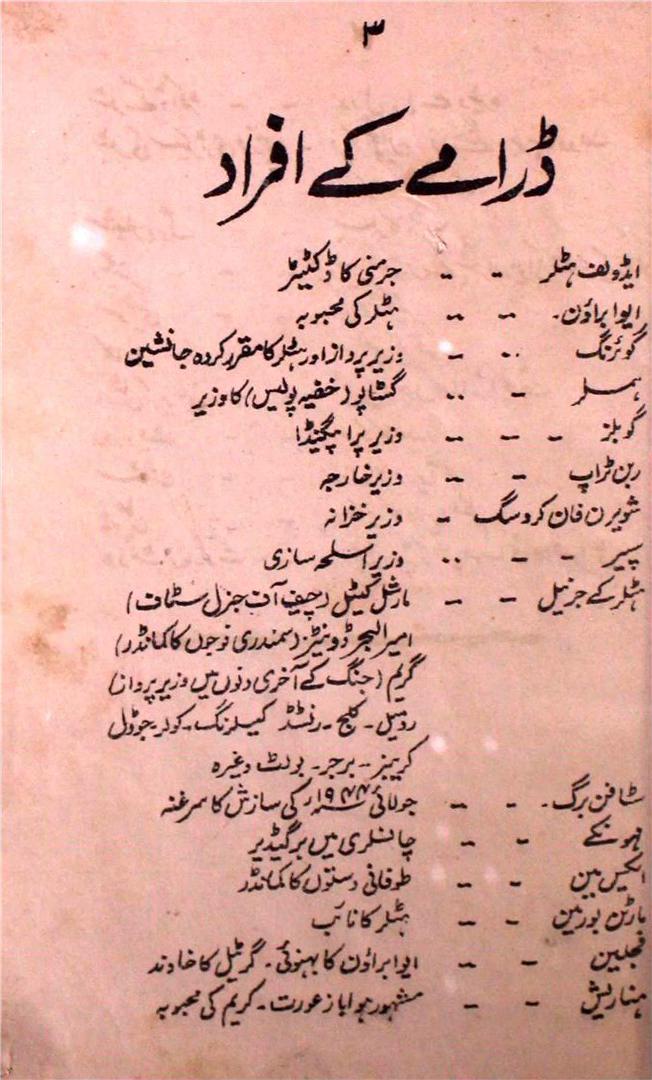 ۳
ڈرامے کے افراد
ایڈولف ہٹلر - - جرمنی کا ڈکٹیٹر
ایوا براؤن۔ - - ہٹلر کی محبوبہ
گوئرنگ - - وزیر پرواز اور ہٹلر کا مقرر کردہ جانشین
ہملر - - گسٹاپو (خفیہ پولیس) کا وزیر
گوبلز - - - وزیر پراپگنڈا
ربن ٹراپ - - وزیر خارجہ
شویرن فان کروسگ - وزیر خزانہ
سپیر - - - وزیر اسلحہ سازی
ہٹلر کے جرنیل - - مارشل کیٹل (چیف آف جنرل سٹاف)
امیر البحر ڈونیٹز (سمندری فوجوں کا کمانڈر)
گریم (جنگ کے آخری دنوں میں وزیر پرواز)
رومیل۔ کلج۔ رنسٹڈ کیسلرنگ۔ کولر جوڈل
کریبز۔ برجر۔ بولٹ وغیرہ
سٹافن برگ۔ - - جولائی ۱۹۴۴ء کی سازش کا سرغنہ
مہونکے - - چانسلری میں برگیڈیر
ایکس مین - - طوفانی دستوں کا کمانڈر
مارٹن بورمین - - ہٹلر کا نائب
فجلین - - ایوا براؤن کا بہنوئی۔ گریٹل کا خاوند
ہنا ریٹش - - مشہور ہوا باز عورت۔ گریم کی محبوبہ